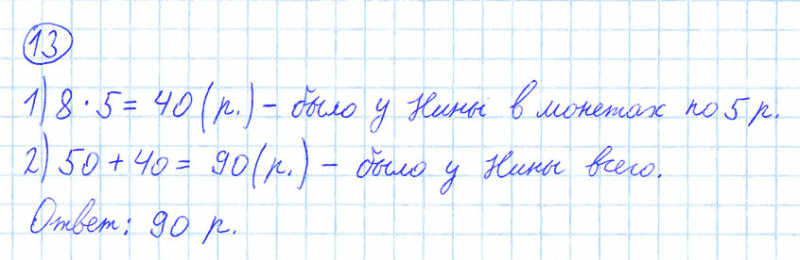 13
1) 8 · 5 = 40 (р.) – было у Нины в монетах по 5 р.
2) 50 + 40 = 90 (р.) – было у Нины всего.
Ответ: 90 р.